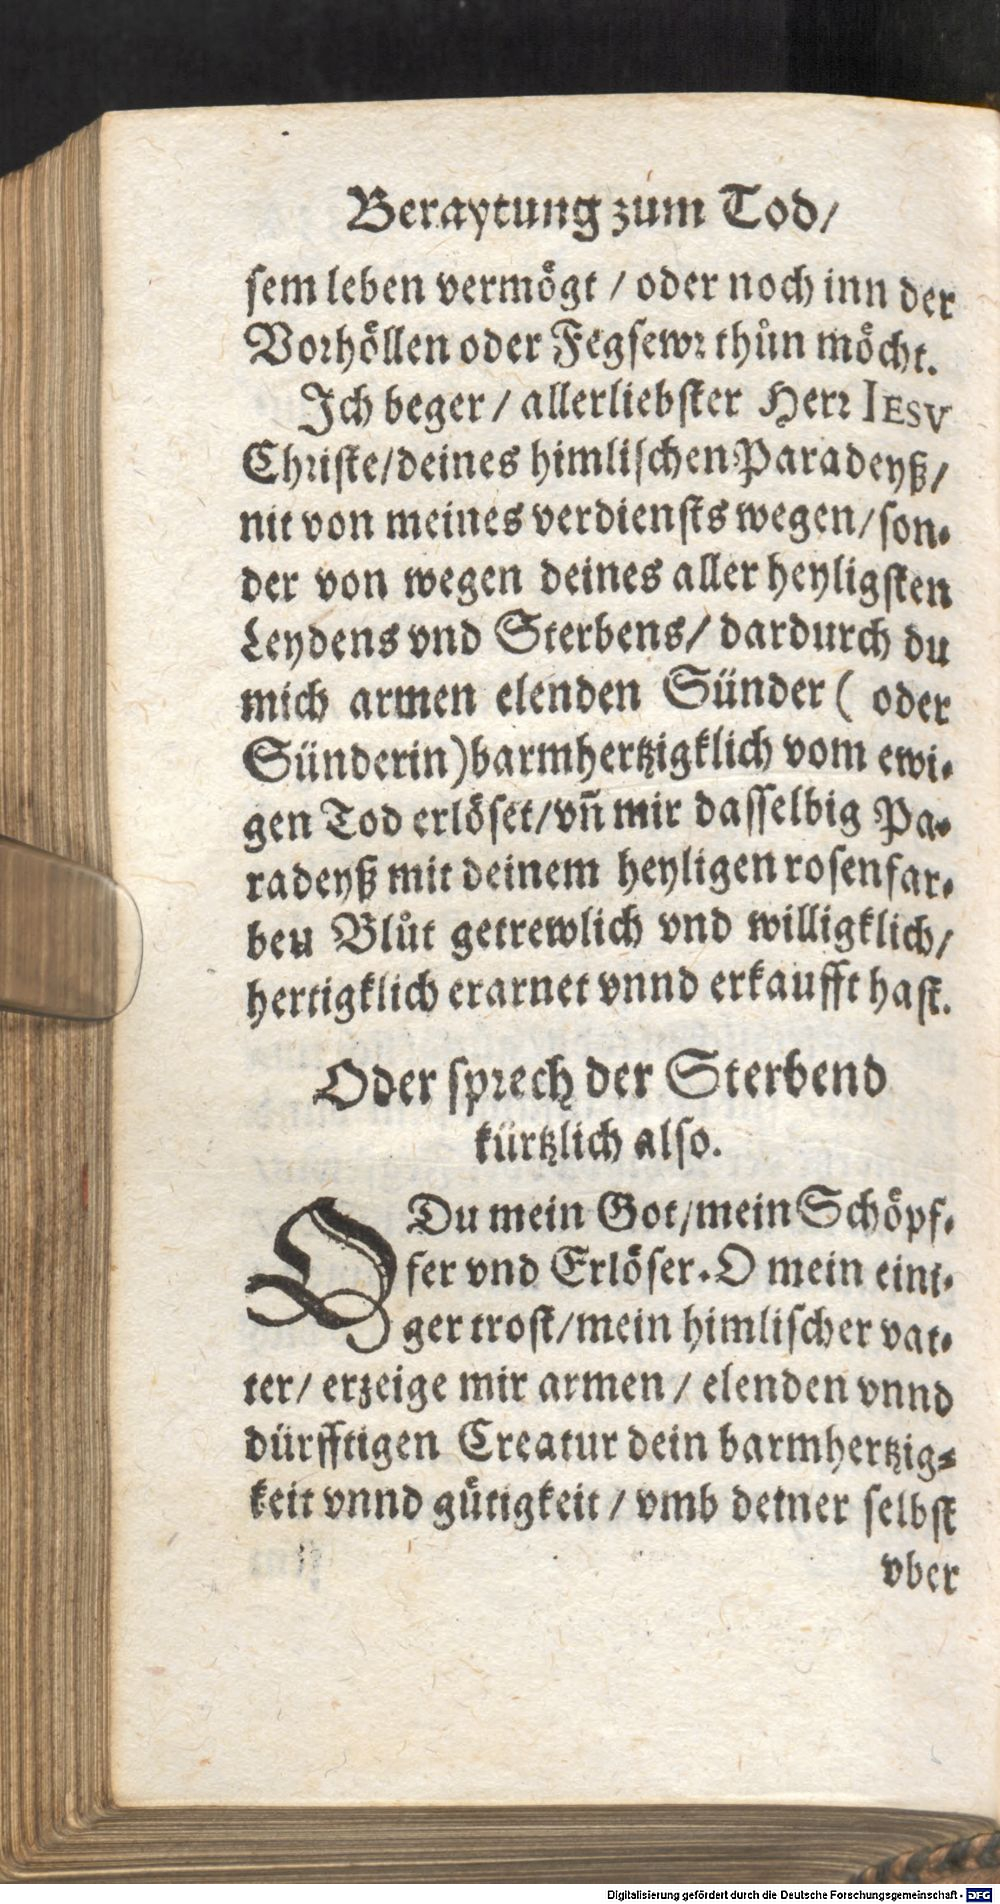 Beraytung zum Tod/
sem leben vermögt / oder noch inn der
Vorhöllen oder Fegfewr thůn möcht.
Ich beger / allerliebster Herr IESV
Christe/deines himlischen Paradeyß/
nit von meines verdiensts wegen/son-
der von wegen deines aller heyligsten
Leydens vnd Sterbens/ dardurch du
mich armen elenden Sünder ( oder
Sünderin)barmhertzigklich vom ewi-
gen Tod erlöset/vn̄ mir dasselbig Pa-
radeyß mit deinem heyligen rosenfar-
beu Blůt getrewlich vnd willigklich/
hertigklich erarnet vnnd erkaufft hast.
Oder sprech der Sterbend
kürtzlich also.
O Du mein Got/mein Schöpf-
fer vnd Erlöser. O mein eini-
ger trost/mein himlischer vat-
ter/ erzeige mir armen / elenden vnnd
dürfftigen Creatur dein barmhertzig-
keit vnnd gütigkeit / vmb detner selbst
vber
Digitalisierung gefördert durch die Deutsche Forschungsgemeinschaft - DFG